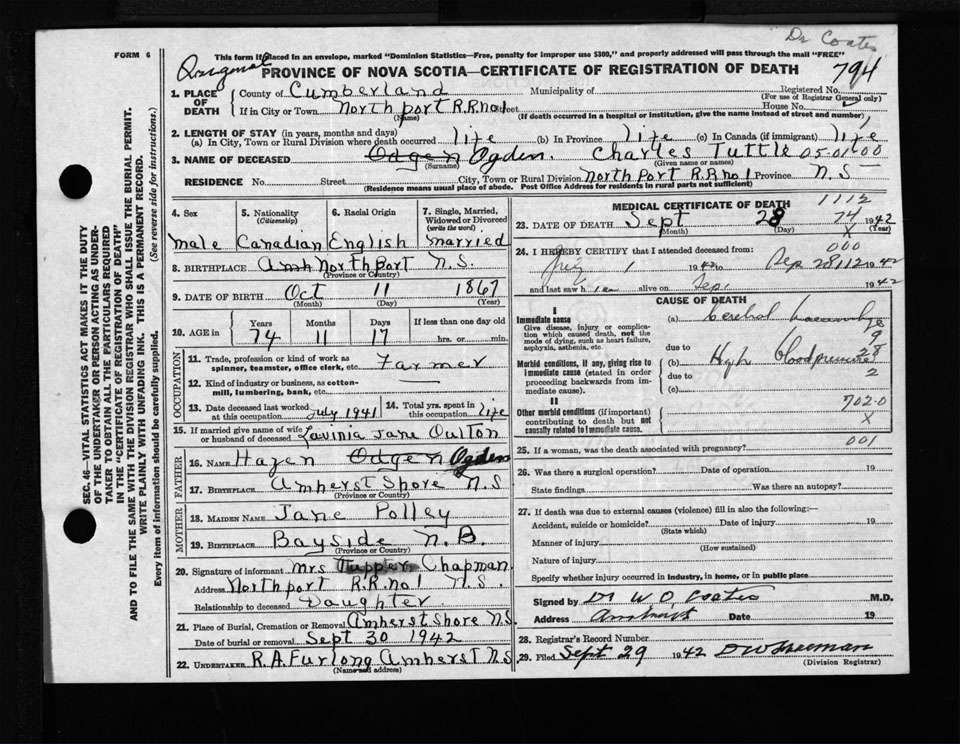 Dr Coates
FORM 6
This form if placed in an envelope, marked "Dominion Statistics—Free, penalty for improper use $300," and properly addressed will pass through the mail "FREE"
Original
PROVINCE OF NOVA SCOTIA—CERTIFICATE OF REGISTRATION OF DEATH
794
1. PLACE OF DEATH
County of Cumberland Municipality of Registered No.
(For use of Registrar General only)
If in City or Town North port R.R no 1 Street House No.
(Name) (If death occurred in a hospital or institution, give the name instead of street and number)
2. LENGTH OF STAY (in years, months and days)
(a) In City, Town or Rural Division where death occurred life (b) In Province life (c) In Canada (if immigrant) life
3. NAME OF DECEASED Odgen Ogden. Charles Tuttle 05-01-00
(Surname) (Given name or names)
RESIDENCE No. Street City, Town or Rural Division North Port R.R no 1 Province N.S
(Residence means usual place of abode. Post Office Address for residents in rural parts not sufficient)
4. Sex
male
5. Nationality
(Citizenship)
Canadian
6. Racial Origin
English
7. Single, Married, Widowed or Divorced
(write the word)
married
8. BIRTHPLACE Amh North port N.S.
(Province or Country)
9. DATE OF BIRTH Oct 11 1867
(Month) (Day) (Year)
10. AGE in
Years Months Days If less than one day old
74 11 17 hrs. or min.
OCCUPATION
11. Trade, profession or kind of work as spinner, teamster, office clerk, etc. Farmer
12. Kind of industry or business, as cotton-mill, lumbering, bank, etc. —
13. Date deceased last worked at this occupation July 1941
14. Total yrs. spent in this occupation life
15. If married give name of wife or husband of deceased Lavinia Jane Oulton
FATHER
16. NAME Hazen Odgen Ogden
17. BIRTHPLACE Amherst Shore N.S
(Province or Country)
MOTHER
18. MAIDEN NAME Jane Polley
19. BIRTHPLACE Bayside N.B.
(Province or Country)
20. Signature of informant mrs Tupper Chapman
Address North port R.R. no 1 N.S.
Relationship to deceased Daughter
21. Place of Burial, Cremation or Removal Amherst Shore N.S
Date of burial or removal Sept 30 1942
22. UNDERTAKER R.A. Furlong Amherst N.S
(Name and address)
MEDICAL CERTIFICATE OF DEATH 1112
23. DATE OF DEATH Sept 28 74 1942
(Month) (Day) X (Year)
24. I HEREBY CERTIFY that I attended deceased from: 000
1 1942 to Sep 28 112 1942
and last saw h im alive on Sep. 1942
CAUSE OF DEATH
I
Immediate cause
Give disease, injury or complication which caused death, not the mode of dying, such as heart failure, asphyxia, asthenia, etc.
(a)
due to 9
Morbid conditions, if any, giving rise to immediate cause (stated in order proceeding backwards from immediate cause).
(b) High blood pressure 28
due to 2
(c)
II
Other morbid conditions (if important) contributing to death but not causally related to immediate cause.
702-0
X
001
25. If a woman, was the death associated with pregnancy?
26. Was there a surgical operation? Date of operation 19
State findings Was there an autopsy?
27. If death was due to external causes (violence) fill in also the following:—
Accident, suicide or homicide? Date of injury 19
(State which)
Manner of injury
(How sustained)
Nature of injury
Specify whether injury occurred in industry, in home, or in public place
Signed by Dr W D Coates M.D.
Address Amherst Date 19
28. Registrar's Record Number
29. Filed Sept 29 1942
(Division Registrar)
SEC. 46—VITAL STATISTICS ACT MAKES IT THE DUTY
OF THE UNDERTAKER OR PERSON ACTING AS UNDER-
TAKER TO OBTAIN ALL THE PARTICULARS REQUIRED
IN THE "CERTIFICATE OF REGISTRATION OF DEATH"
AND TO FILE THE SAME WITH THE DIVISION REGISTRAR WHO SHALL ISSUE THE BURIAL PERMIT.
WRITE PLAINLY WITH UNFADING INK. THIS IS A PERMANENT RECORD.
Every item of information should be carefully supplied. (See reverse side for instructions.)